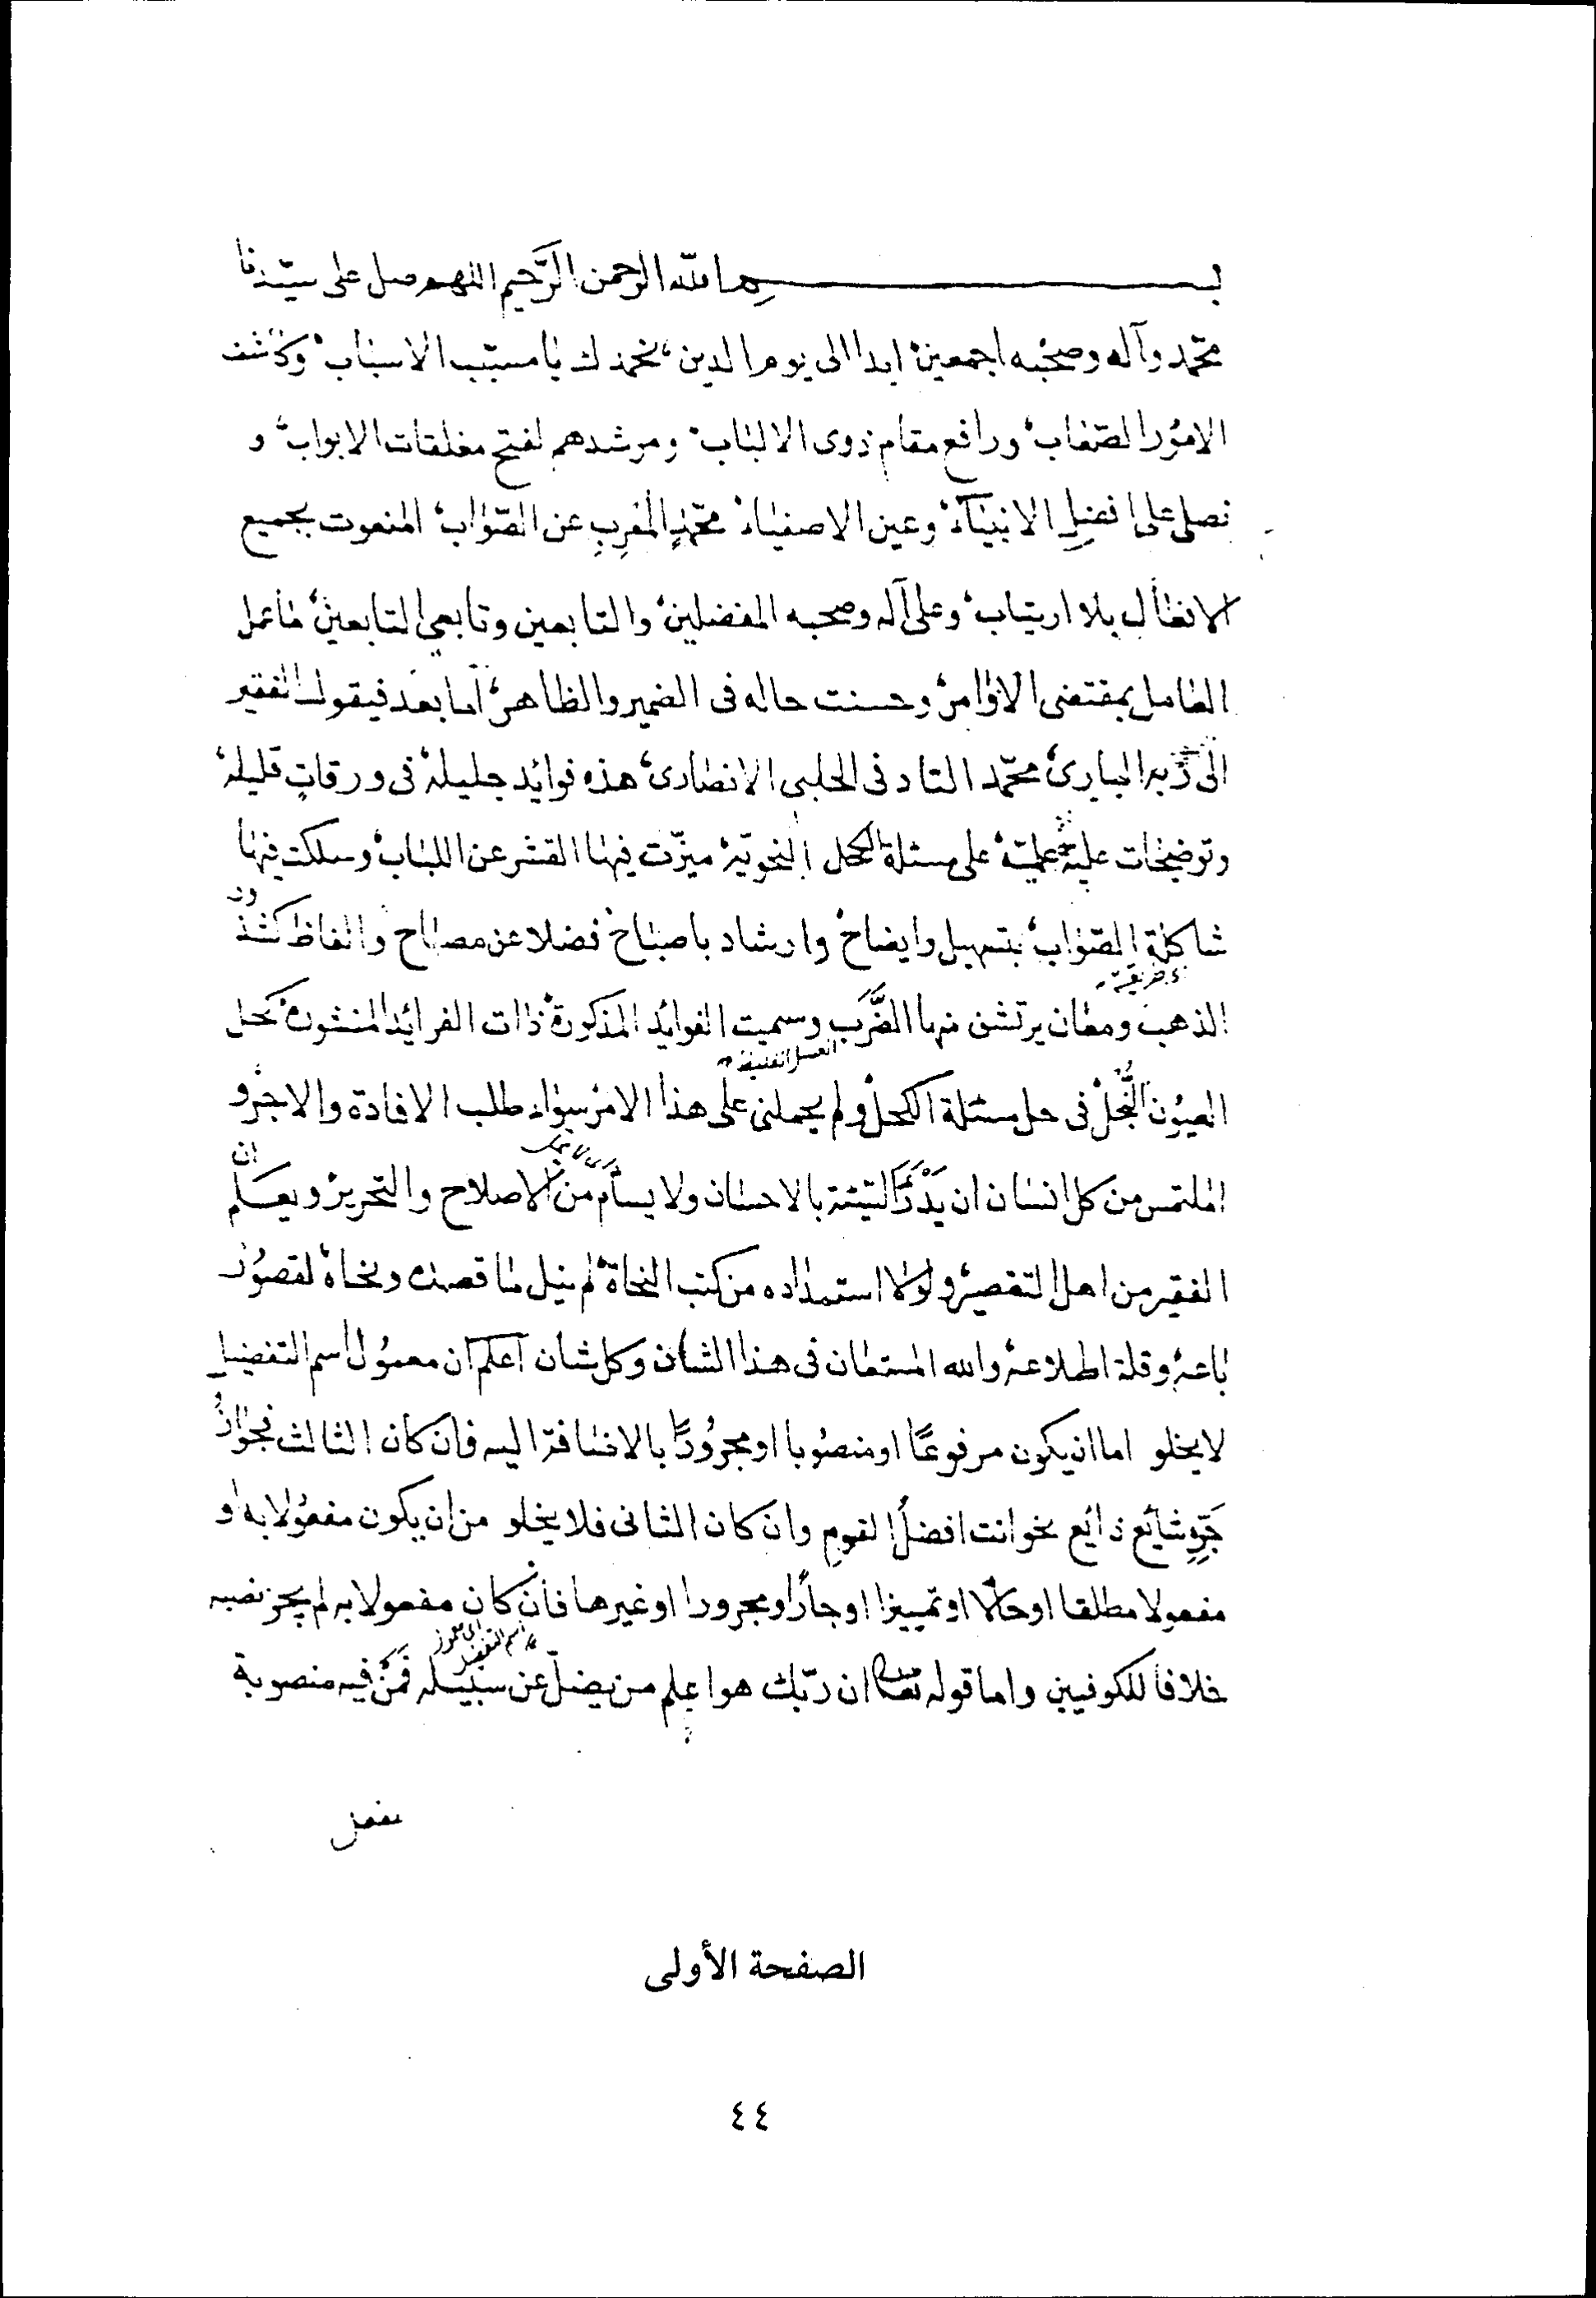 بسم الله الرحمن الرَّحيم اللهم صل على سيّدنا
محمّد وآله وصحبه اجمعين ابدا الى يوم الدين نحمدك يا مسبّب الاسباب وكاشف
الامور الصّعاب ورافع مقام ذوى الالباب ومرشدهم لفتح مغلقات الابواب و
نصلى على افضلِ الانبيآء وعين الاصفياء محمّدٍ المُعرِبِ عن الصّواب المنعوت بجميع
الافعال بلا ارتياب وعلى آله وصحبه المفضلين والتابعين وتابعي التابعين ما عمل
العامل بمقتضى الاوامر وحسنت حاله فى الضمير والظاهر اما بعد فيقول الفقير
الى ربه البارى محمّد التادفى الحلبى الانصارى هذه فوائد جليلة فى ورقات قليلة
وتوضيحات علية علميّة على مسئلة الكحل النحويّة ميزّت فيها القشر عن اللباب وسلكت فيها
شاكلة الصّواب بتسهيل وايضاح وارشاد باصباح فضلا عن مصباح والفاظ كشذور
اى طريقته
الذهب ومعان يرتشف منها الضَّرَب وسميت الفوايد المذكورة ذات الفرائد المنثورة كحل
العسل الغليظ
العيون النُّجل فى حل مسئلة الكحل ولم يحملنى على هذا الامر سواء طلب الافادة والاجر و
الملتمس من كل انسان ان يَدْرَأَ السّيئة بالاحسان ولا يسأم من الاصلاح والتحرير ويعلم ان
الفقير من اهل التقصير ولولا استمداده من كتب النحاة لم ينل ما قصده ونحاه لقصور
باعه وقلة اطلاعه والله المستعان فى هذا الشان وكل شان اعلم ان معمول اسم التفضيل
لا يخلو اما ان يكون مرفوعًا او منصوبا او مجرورًا بالاضافة اليه فان كان الثالث فجواز
جَرِّهِ شايع ذايع نحو انت افضلُ القومِ وان كان الثانى فلا يخلو من ان يكون مفعولا به او
مفعولا مطلقا او حالا او تمييزا او جارًا ومجرورا او غيرها فان كان مفعولا به لم يجز نصبه
خلافا للكوفيين واما قوله تعالى ان ربّك هو اعلم من يضلّ عن سبيله فَمَنْ فيه منصوبة
بفعل
الصفحة الأولى
٤٤